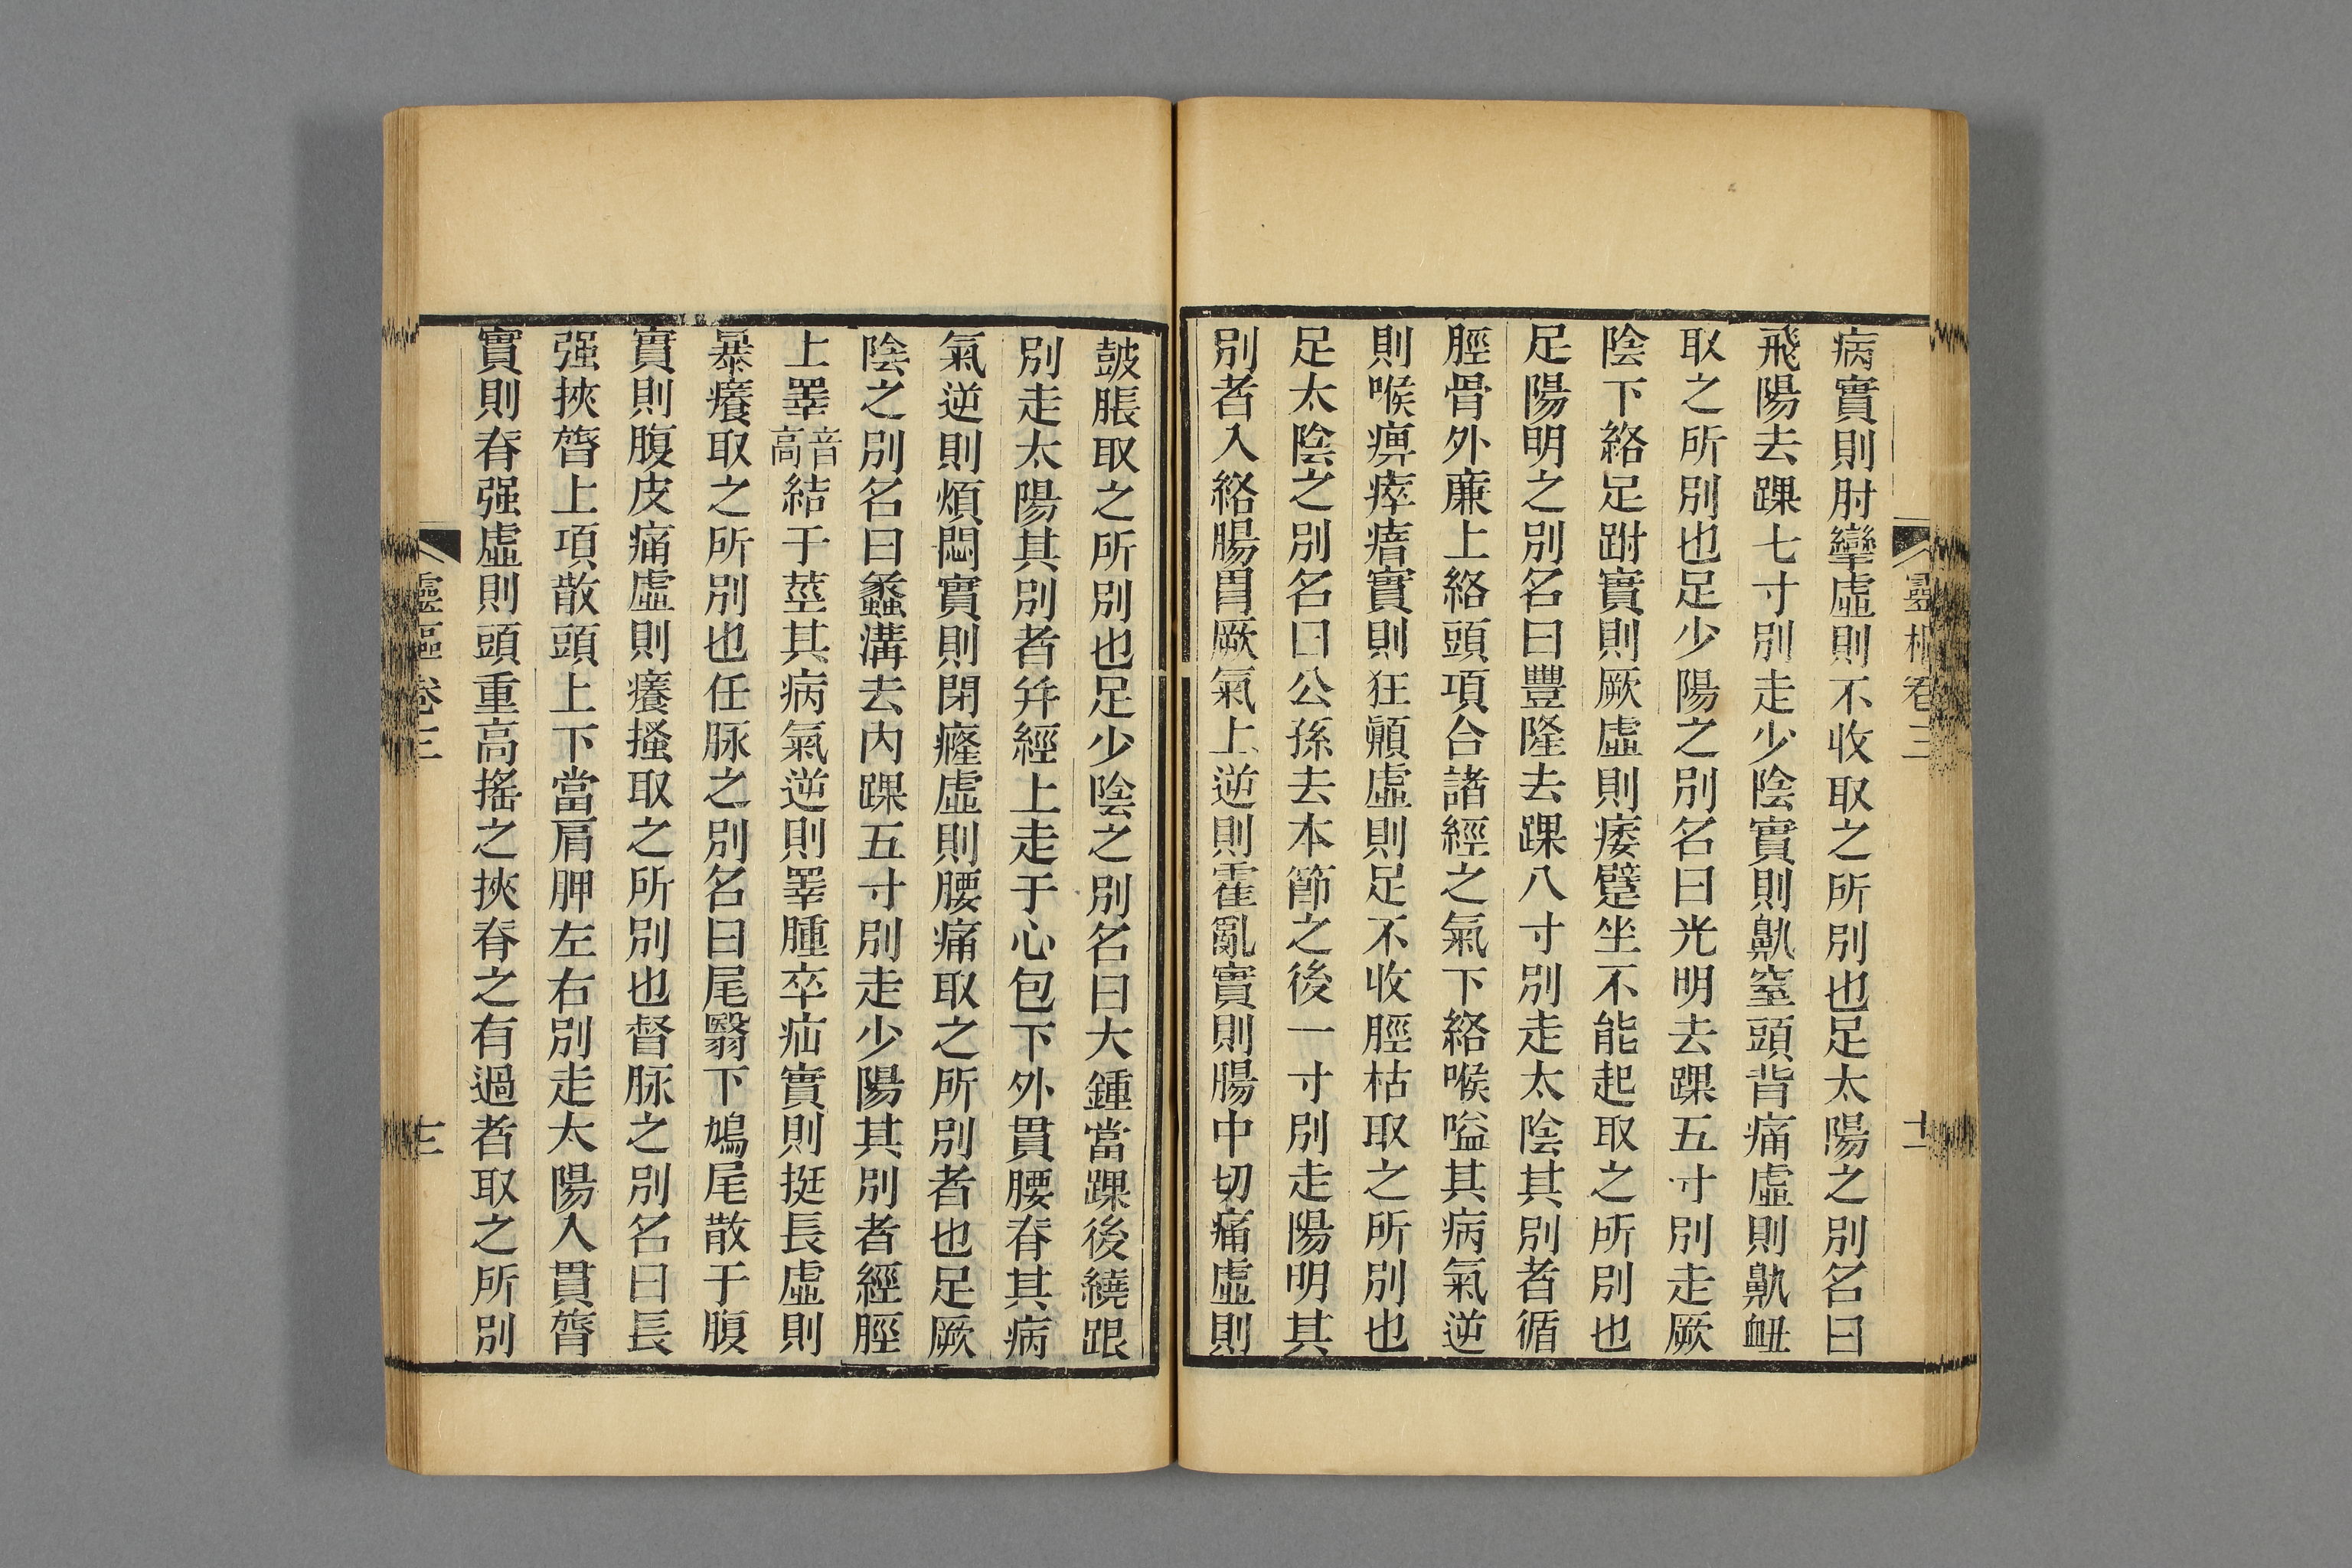 病實則肘攣虛則不收取之所別也足太陽之別名曰
飛陽去踝七寸別走少陰實則鼽窒頭背痛虛則鼽衄
取之所別也足少陽之別名曰光明去踝五寸別走厥
陰下絡足跗實則厥虛則痿躄坐不能起取之所別也
足陽明之別名曰豐隆去踝八寸別走太陰其別者循
脛骨外廉上絡頭項合諸經之氣下絡喉嗌其病氣逆
則喉痹瘁瘖實則狂顚虛則足不收脛枯取之所別也
足太陰之別名曰公孫去本節之後一寸別走陽明其
別者入絡腸胃厥氣上逆則霍亂實則腸中切痛虛則
鼓脹取之所別也足少陰之別名曰大鍾當踝後繞跟
別走太陽其別者并經上走于心包下外貫腰脊其病
氣逆則煩悶實則閉癃虛則腰痛取之所別者也足厥
陰之別名曰蠡溝去內踝五寸別走少陽其別者經脛
上睪音高結于莖其病氣逆則睪腫卒疝實則挺長虛則
暴癢取之所別也任脉之別名曰尾翳下鳩尾散于腹
實則腹皮痛虛則癢搔取之所別也督脉之別名曰長
强挾膂上項散頭上下當肩胛左右別走太陽入貫膂
實則脊强虛則頭重高搖之挾脊之有過者取之所別
靈樞卷三